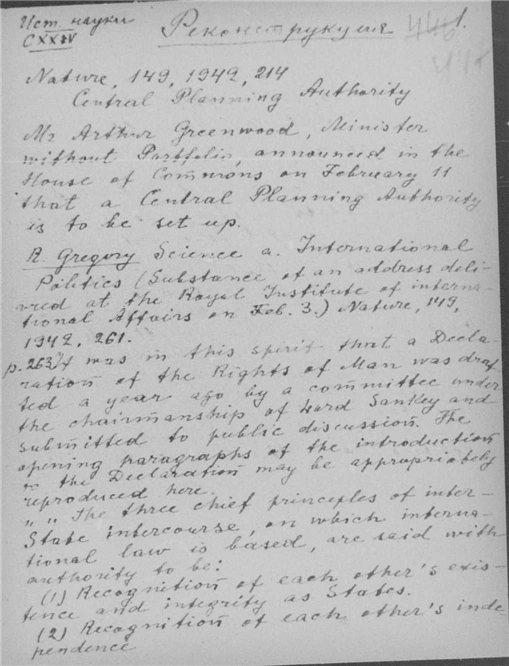 Ист. науки
CXXIV
Реконструкция
1.
Nature, 149, 1942, 214
Central Planning Authority
Mr Arthur Greenwood, Minister
without Portfolio, announced in the
House of Commons on February 11
that a Central Planning Authority
is to be set up.
R. Gregory Science a. International
Politics (Substance of an address deli-
vred at the Royal Institute of interna-
tional Affairs on Feb. 3.) Nature, 149,
1942, 261.
p. 263 It was in this spirit that a Decla-
ration of the Rights of Man was draf
ted a year ago by a committee under
the chairmanship of Lord Sankey and
submitted to public discussion. The
opening paragraphs of the introduction
to the Declaration may be appropriately
reproduced here.
„ „ The three chief principles of inter-
State intercourse, on which interna-
tional law is based, are said with
authority to be:
(1) Recognition of each other's exis-
tence and integrity as States.
(2) Recognition of each other's inde
pendence